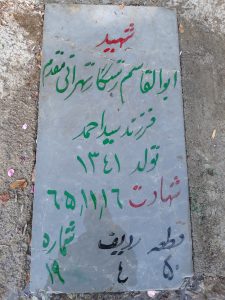 شهید
ابوالقاسم رستگار تهرانی مقدم
فرزند سید احمد
تولد ۱۳۴۱
شهادت ۶۵/۱۱/۱۶
قطعه ردیف شماره
۵۰ ۴ ۱۹